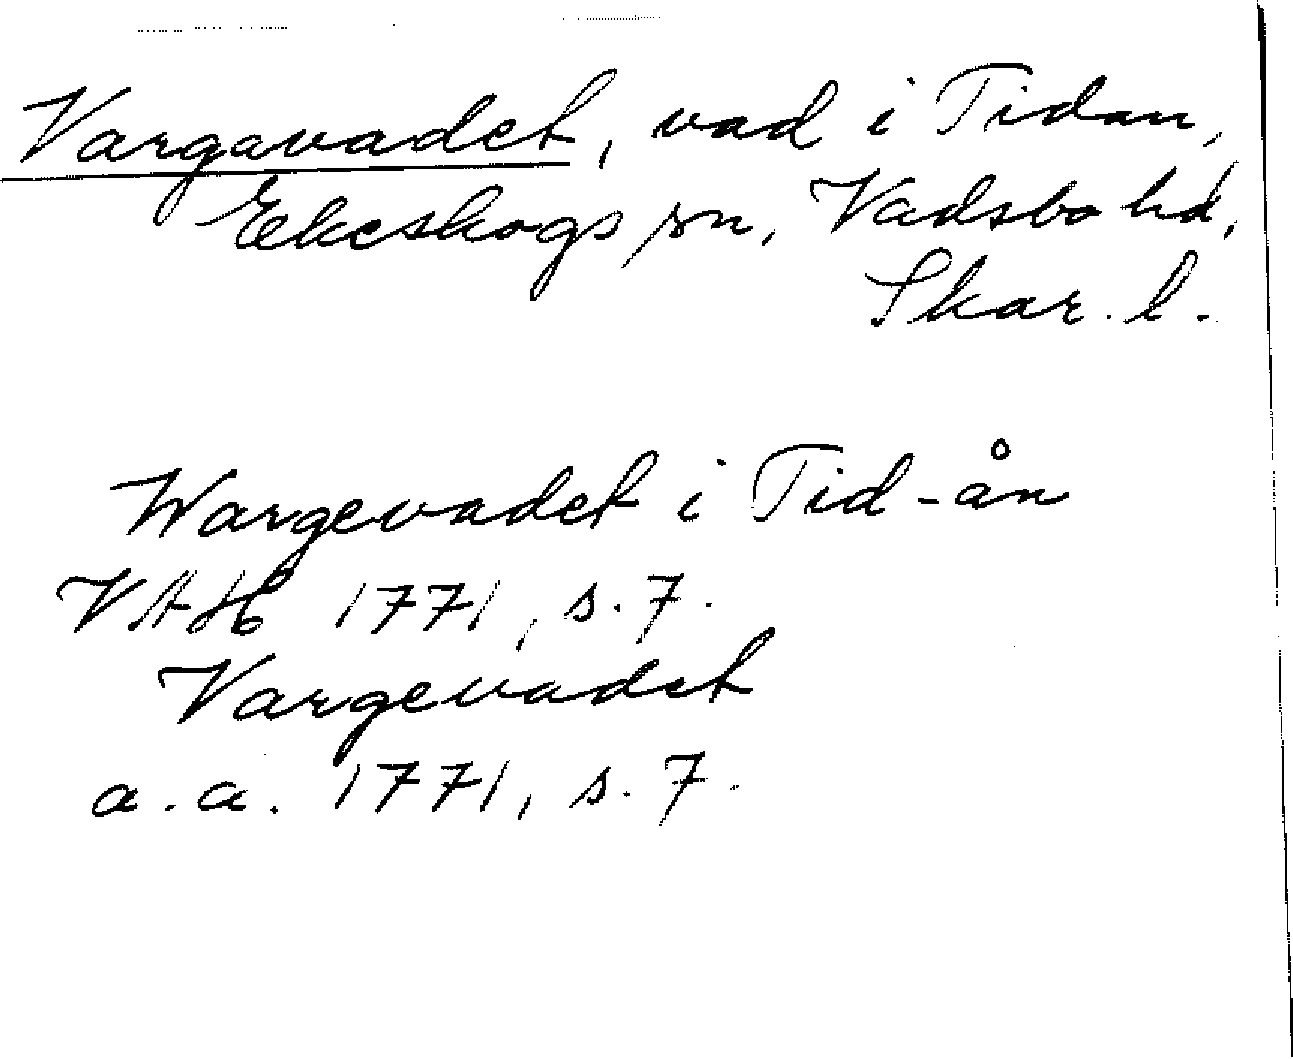 Vargavadet, vad i Tidan,
Ekeskogs sn, Vadsbo hd,
Skar. l.
Wargevadet i Tid-ån
VAH 1771, s. 7.
Vargevadet
a. a. 1771, s. 7.